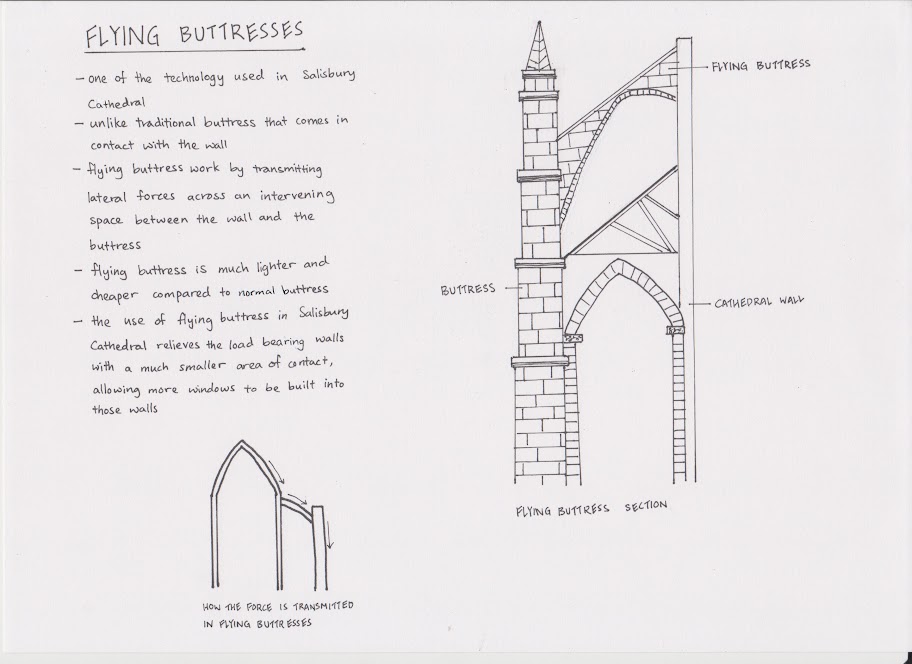 FLYING BUTTRESSES
- one of the technology used in Salisbury
Cathedral
- unlike traditional buttress that comes in
contact with the wall
- flying buttress work by transmitting
lateral forces across an intervening
space between the wall and the
buttress
- flying buttress is much lighter and
cheaper compared to normal buttress
- the use of flying buttress in Salisbury
Cathedral relieves the load bearing walls
with a much smaller area of contact,
allowing more windows to be built into
those walls
HOW THE FORCE IS TRANSMITTED
IN FLYING BUTTRESSES
FLYING BUTTRESS
BUTTRESS
CATHEDRAL WALL
FLYING BUTTRESS SECTION